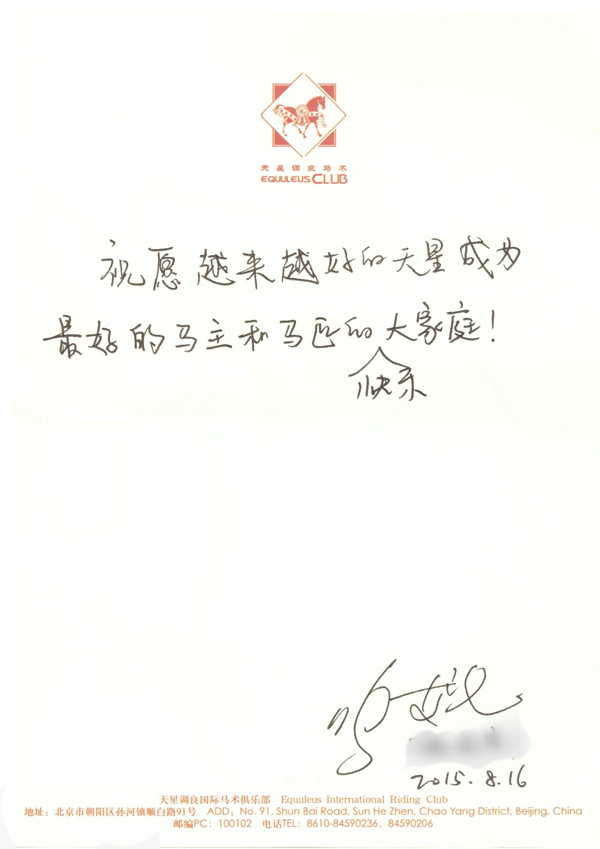 天星调良马术
EQUULEUS CLUB
祝愿越来越好的天星成为
最好的马主和马匹的大家庭!
快乐
2015.8.16
天星调良国际马术俱乐部 Equuleus International Riding Club
地址:北京市朝阳区孙河镇顺白路91号 ADD:No. 91, Shun Bai Road, Sun He Zhen, Chao Yang District, Beijing, China
邮编PC:100102 电话TEL:8610-84590236、84590206